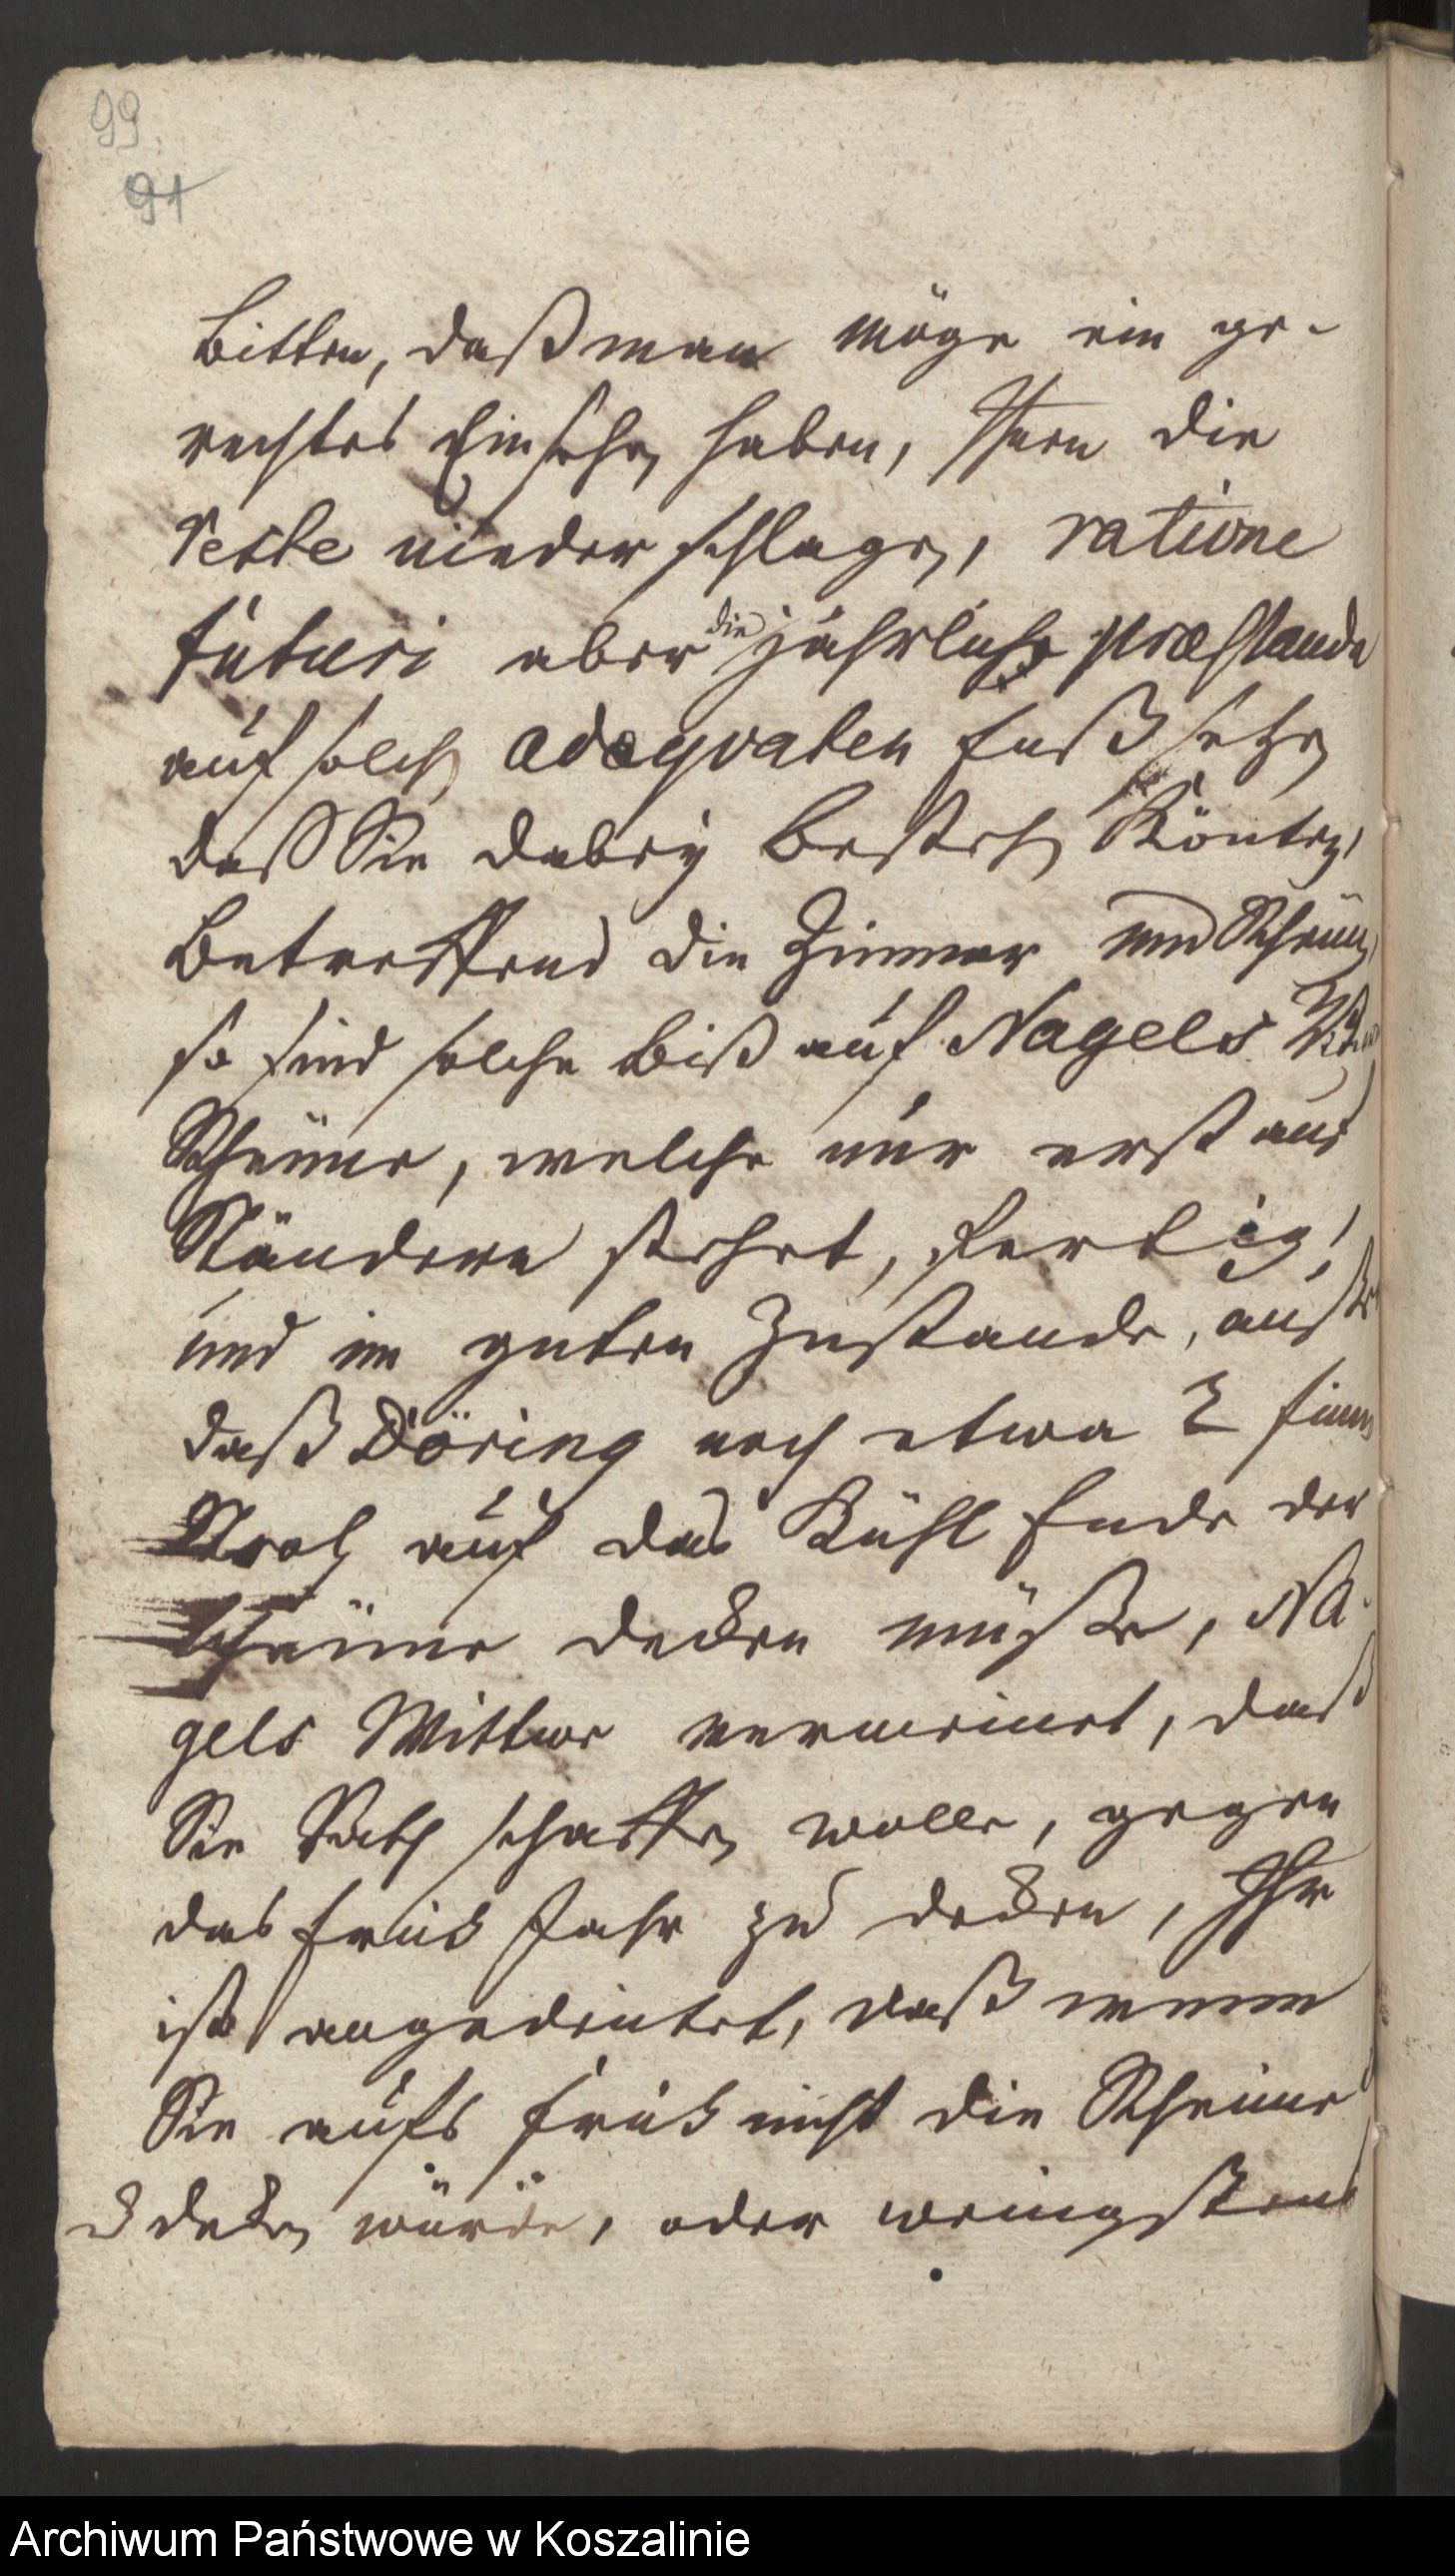 99
91
Bitten, daß man möge ein ge-
rechtes Einsehn haben, Ihnen die
Reste niederschlagen, ratione
futuri aber die jährliche præstanda
auf solch adæqvaten Fuß setzen
daß Sie dabey bestehen könten,
Betreffend die Zimmer und Scheunen,
so sind solche biß auf Nagels
Scheune, welche nur erst aus
Ständern stehet, fertig,
und im guten Zustande, außer
daß Döring noch etwa 2
Stroh auf das Kühl Ende der
Scheune decken müste, Na-
gels Wittwe vermeinet, daß
Sie Rath schaffen wolle, gegen
das Früh Jahr zu decken, Ihr
ist angedeutet, daß wenn
Sie aufs Früh nicht die Scheune
decken würde, oder wenigstens
Archiwum Państwowe w Koszalinie